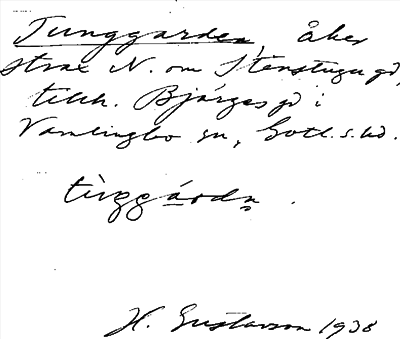 Tunggarden, åker
strax N. om Stenstugu gd,
tillh. Bjärges gd i
Vamlingbo sn, Gotl. s. hd.
H. Gustavson 1938